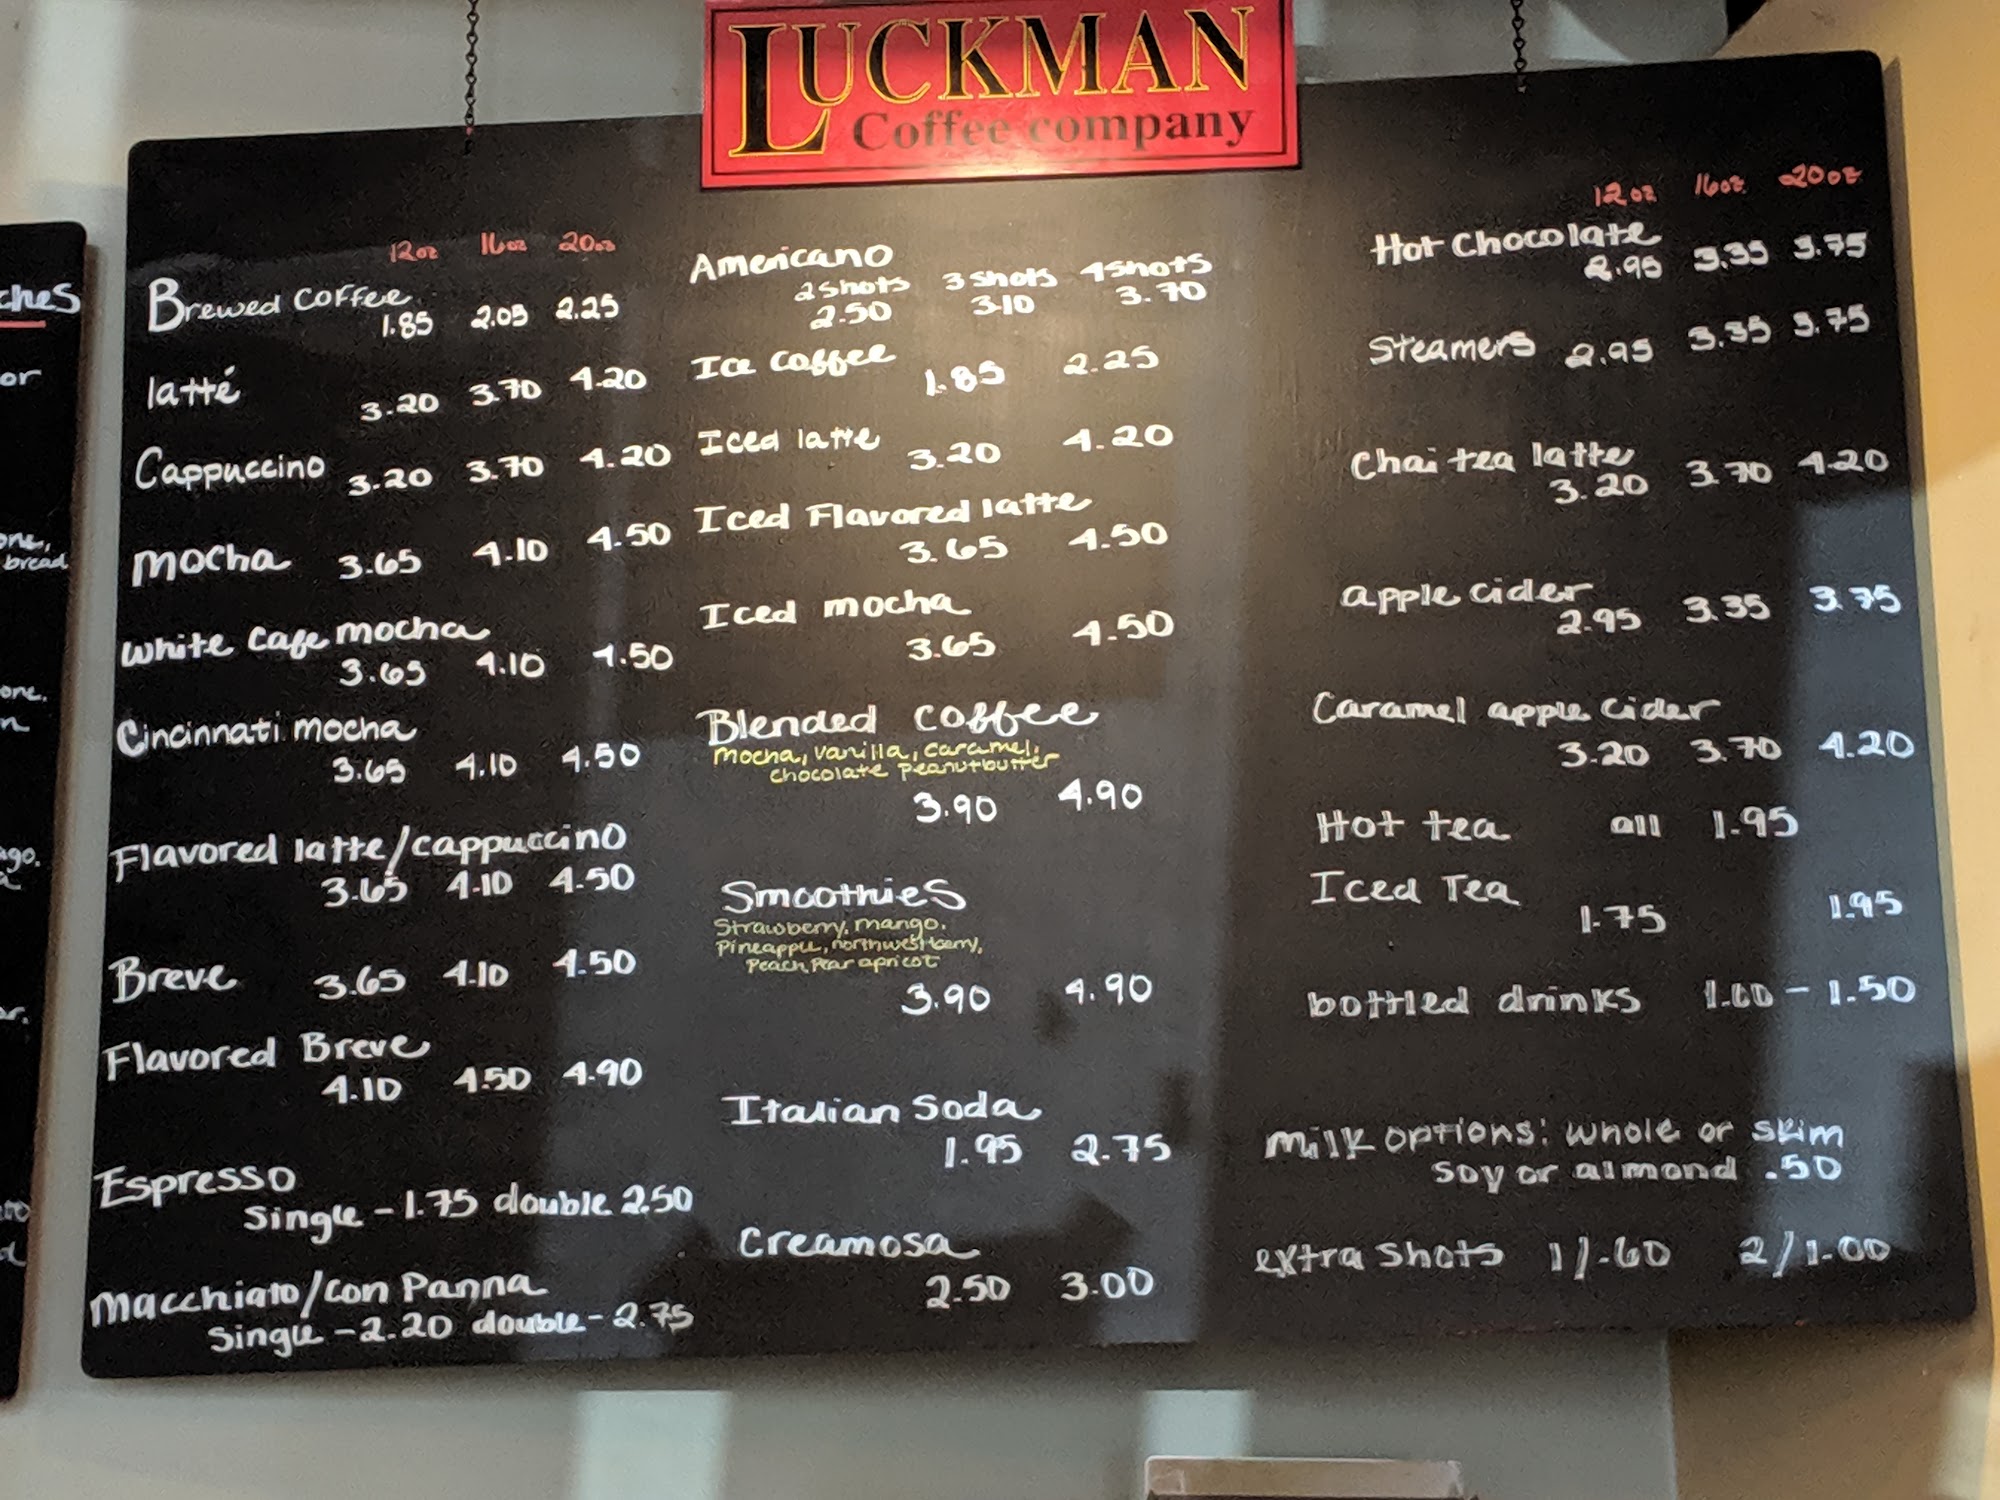 LUCKMAN
Coffee company
ches
or
one,
bread
one.
n
ago.
12oz 16oz 20oz
Brewed Coffee
1.85 2.05 2.25
latté
3.20 3.70 4.20
Cappuccino 3.20 3.70 4.20
mocha 3.65 4.10 4.50
white cafe mocha
3.65 4.10 4.50
Cincinnati mocha
3.65 4.10 4.50
Flavored latte/cappuccino
3.65 4.10 4.50
Breve 3.65 4.10 4.50
Flavored Breve
4.10 4.50 4.90
Espresso
single - 1.75 double 2.50
Macchiato/Con Panna
single - 2.20 double - 2.75
Americano
2 shots 3 shots 4 shots
2.50 3.10 3.70
Ice coffee 1.85 2.25
Iced latte 3.20 4.20
Iced Flavored latte
3.65 4.50
Iced mocha
3.65 4.50
Blended coffee
mocha, vanilla, caramel,
chocolate peanutbutter
3.90 4.90
Smoothies
Strawberry, mango,
Pineapple, northwest berry,
Peach, Pear apricot
3.90 4.90
Italian Soda
1.95 2.75
Creamosa
2.50 3.00
12oz 16oz 20oz
Hot Chocolate
2.95 3.35 3.75
Steamers 2.95 3.35 3.75
Chai tea latte
3.20 3.70 4.20
apple cider
2.95 3.35 3.75
Caramel apple cider
3.20 3.70 4.20
Hot tea all 1.95
Iced Tea
1.75 1.95
bottled drinks 1.00 - 1.50
milk options: whole or skim
soy or almond .50
extra shots 1/.60 2/1.00